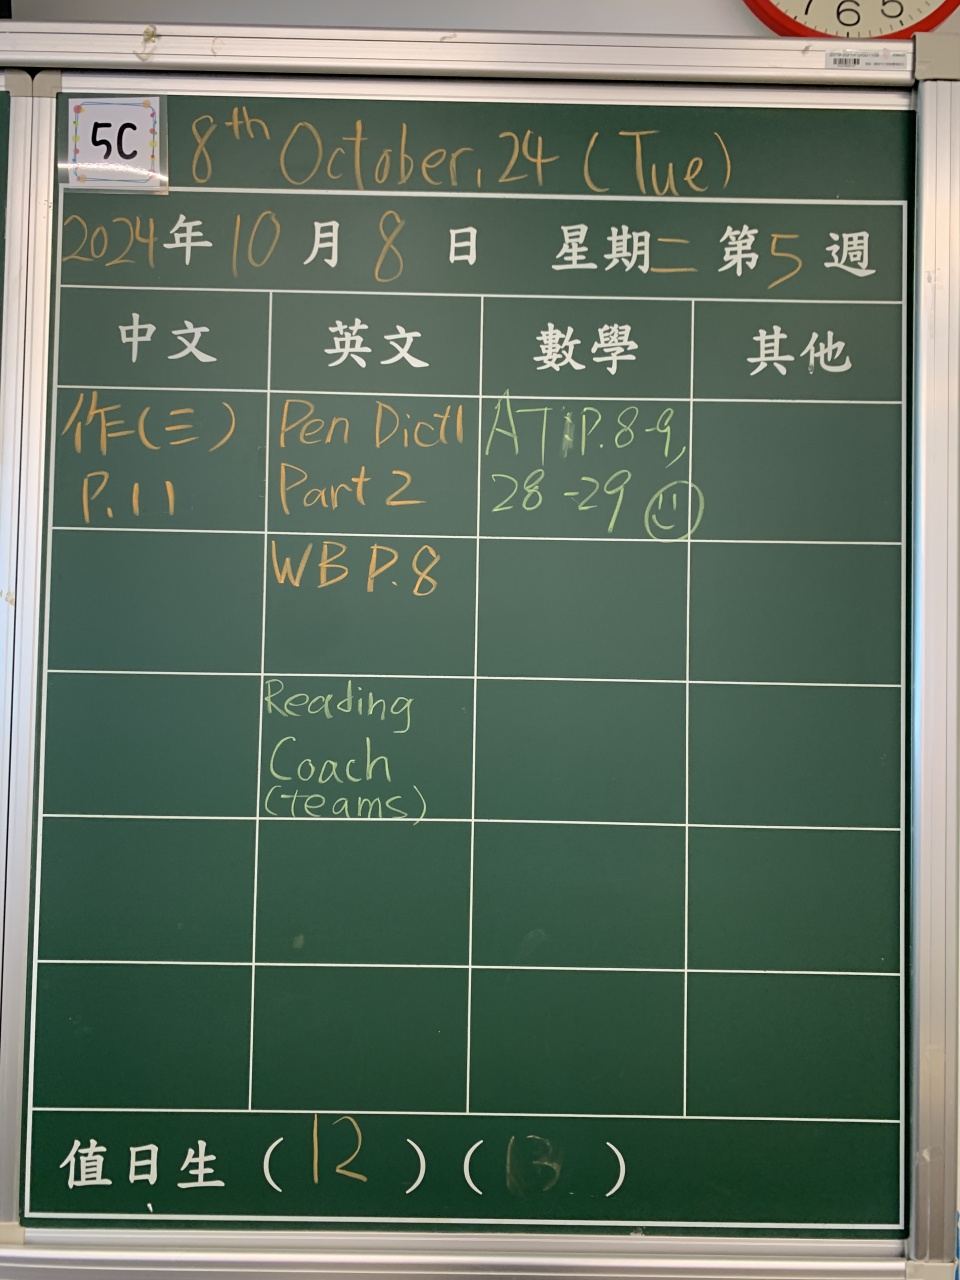 7 6 5
5C
8th October, 24 (Tue)
2024年10月8日 星期二 第5週
中文 英文 數學 其他
作(三)
P.11
Pen Dict1
Part 2
AT P.8-9,
28-29
WB P.8
Reading
Coach
(teams)
值日生 (12) (13)